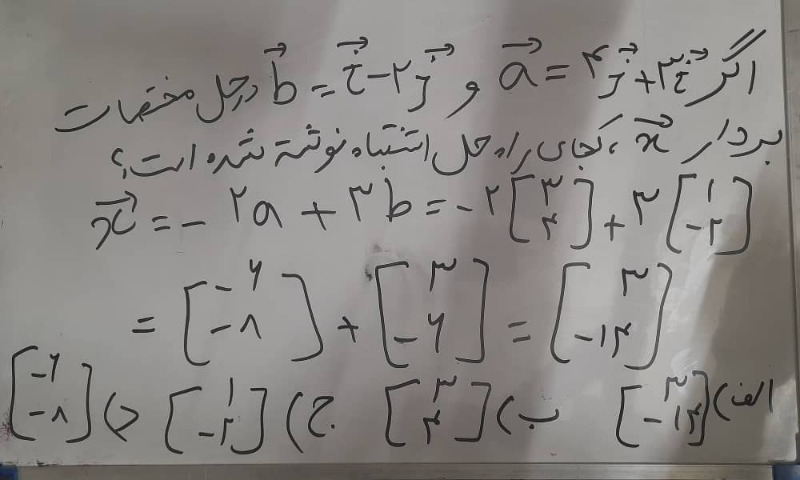 اگر a⃗ = ۴j⃗ + ۳i⃗ و b⃗ = i⃗ − ۲j⃗ در حل مختصات
بردار x⃗ ، کجای راه حل اشتباه نوشته شده است؟
x⃗ = − ۲a + ۳b = −۲ [۳ ۴] + ۳ [۱ −۲]
= [−۶ −۸] + [۳ −۶] = [۳ −۱۴]
الف) [۳ −۱۴] ب) [۳ ۴] ج) [۱ −۲] د) [−۶ −۸]